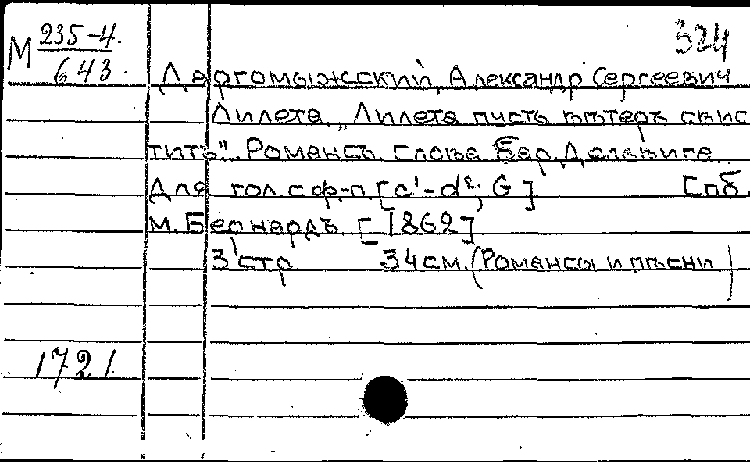 М 235-4. 324
643.
Даргомыжский, Александр Сергеевич
Лилета. „Лилета пусть вѣтеръ свис
титъ". Романсъ. слова Бар. Дельвига
Для гол. с ф-п. [c'-d², G] [Спб.
М. Бернардъ. [1862]
3 стр 34 см. (Романсы и пѣсни)
1721.